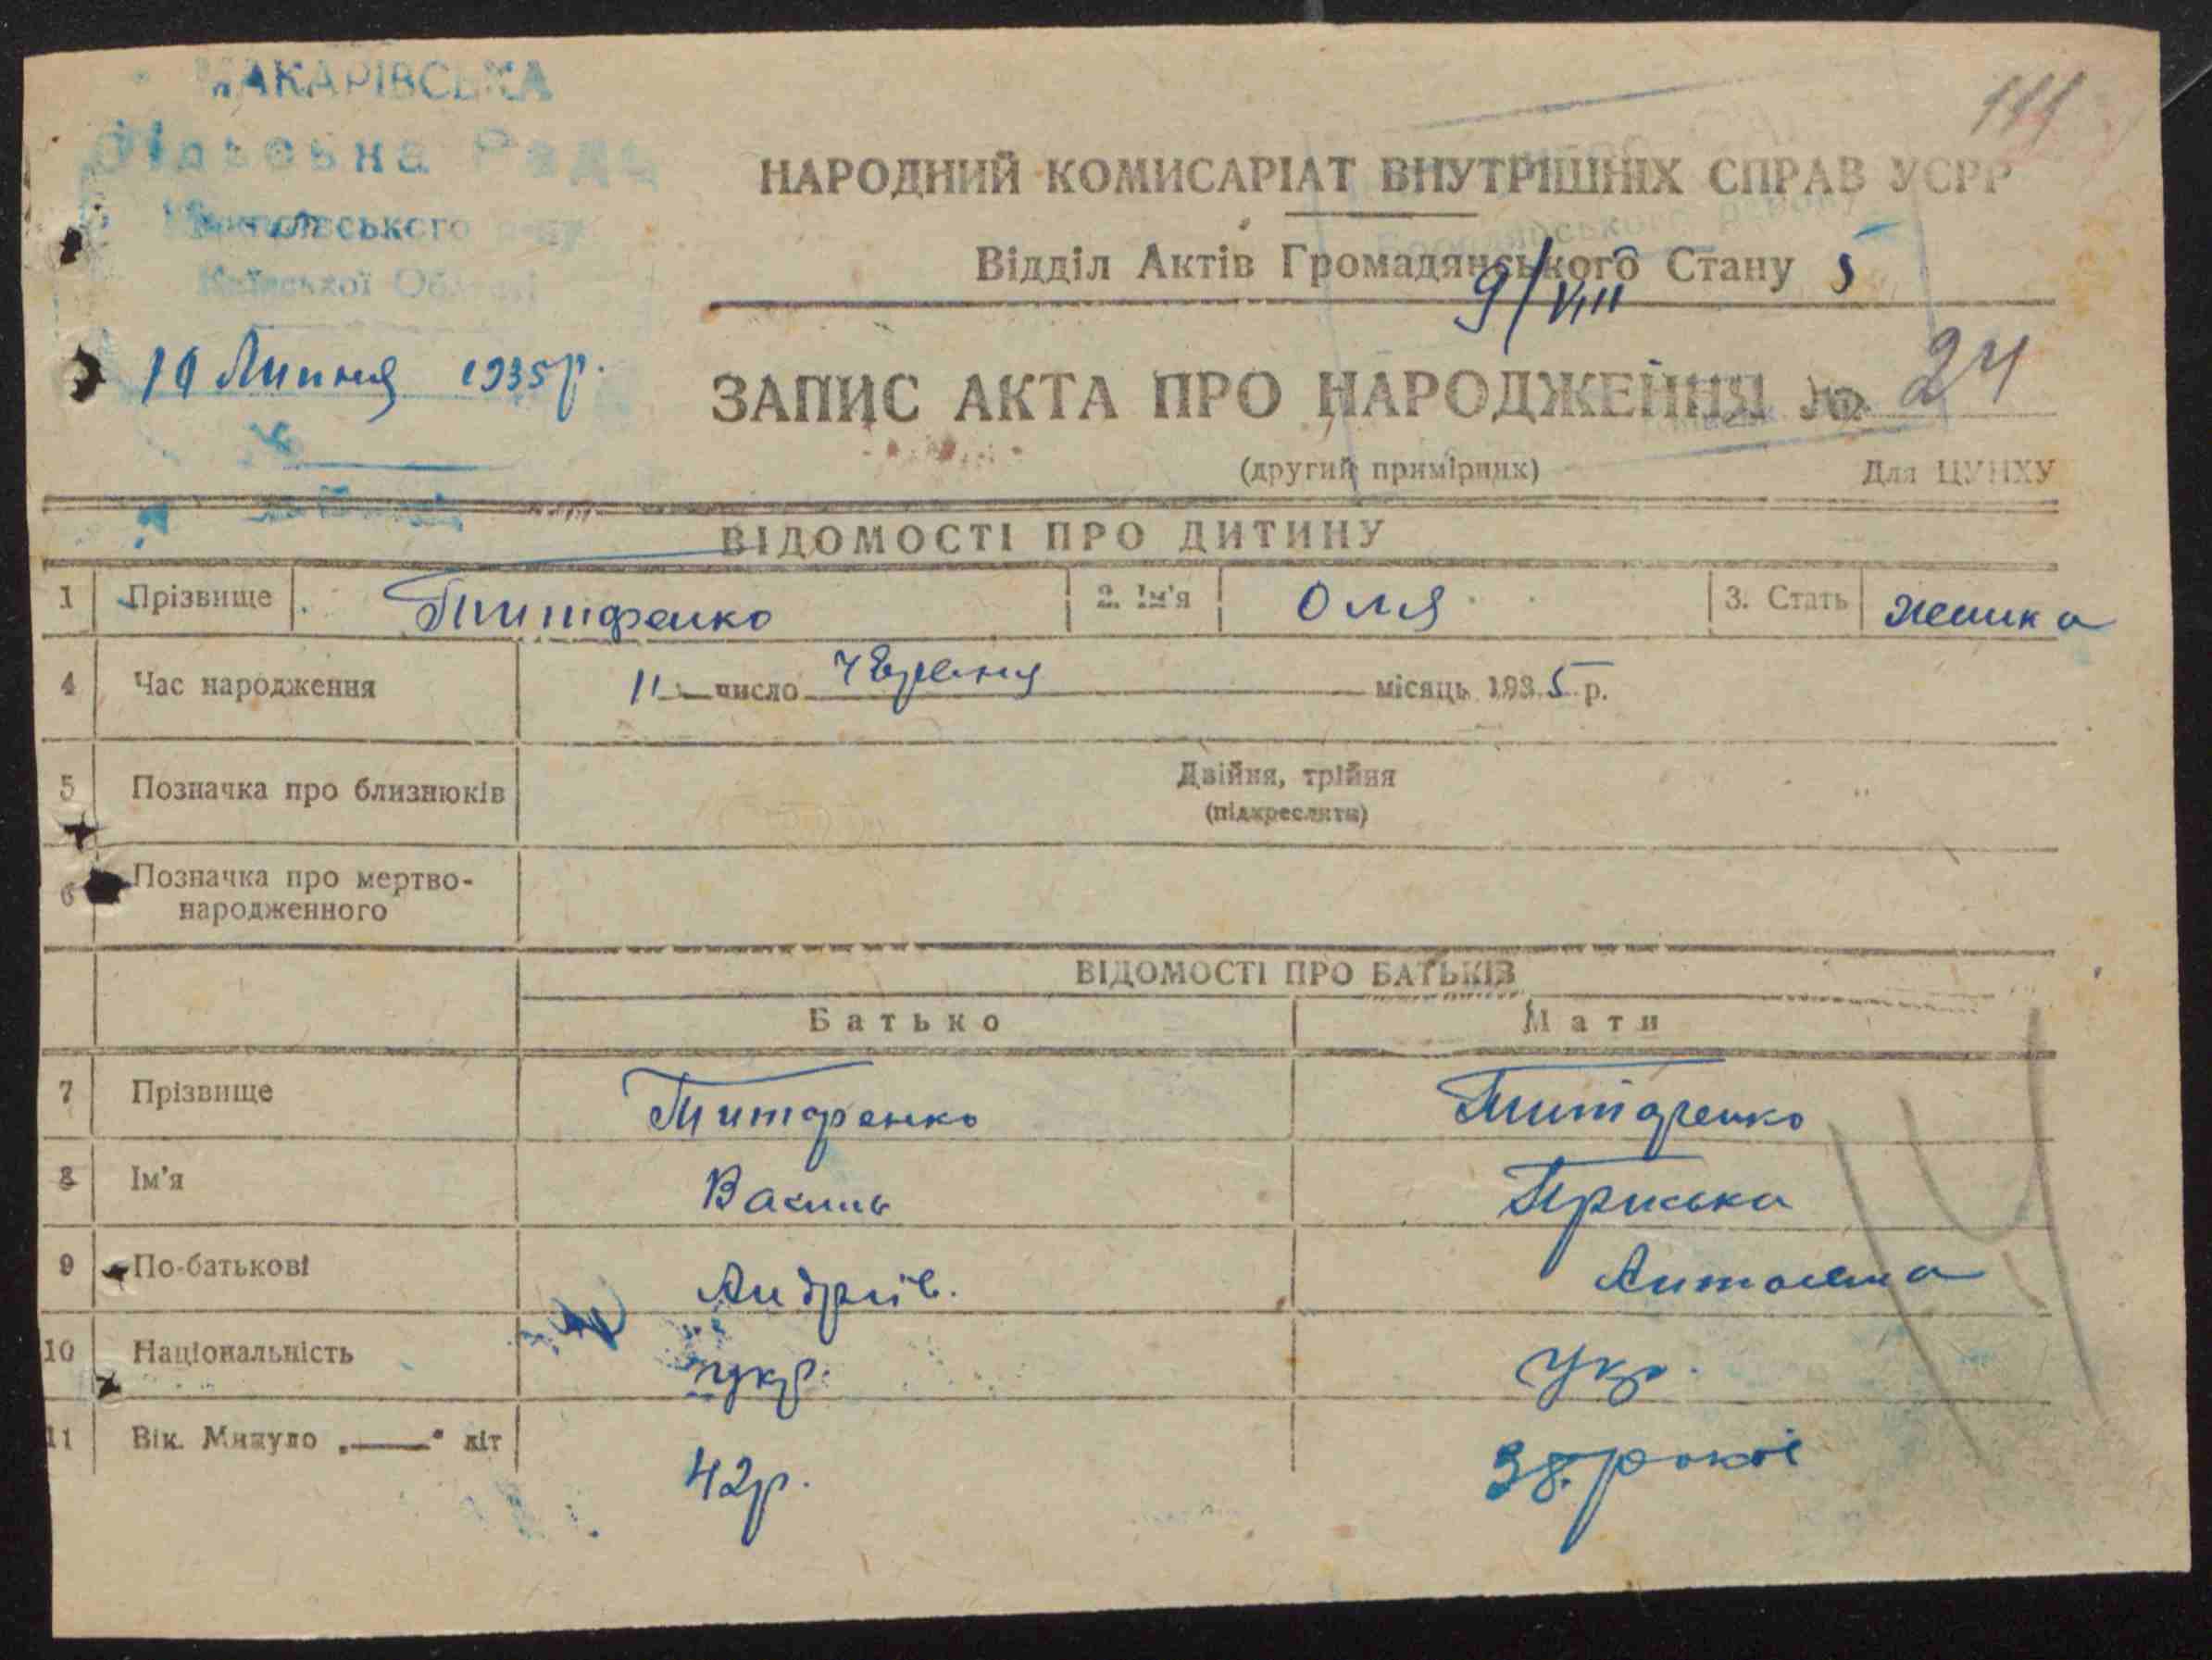 МАКАРІВСЬКА
Сільська Рада
Київської Області
10 Липня 1935 р.
111
НАРОДНИЙ КОМИСАРІАТ ВНУТРІШНІХ СПРАВ УСРР
Відділ Актів Громадянського Стану 5
9/VIII
ЗАПИС АКТА ПРО НАРОДЖЕННЯ № 24
(другий примірник) Для ЦУНХУ
ВІДОМОСТІ ПРО ДИТИНУ
1 Прізвище Титаренко 2. Ім'я Оля 3. Стать жінка
4 Час народження 11 число червня місяць 1935 р.
5 Позначка про близнюків Двійня, трійня
(підкреслити)
6 Позначка про мертво-
народженного
ВІДОМОСТІ ПРО БАТЬКІВ
Батько Мати
7 Прізвище Титаренко Титаренко
8 Ім'я Василь Приська
9 По-батькові Андріїв. Антонівна
10 Національність укр. Укр.
11 Вік. Минуло „—“ літ 42 р. 38. років